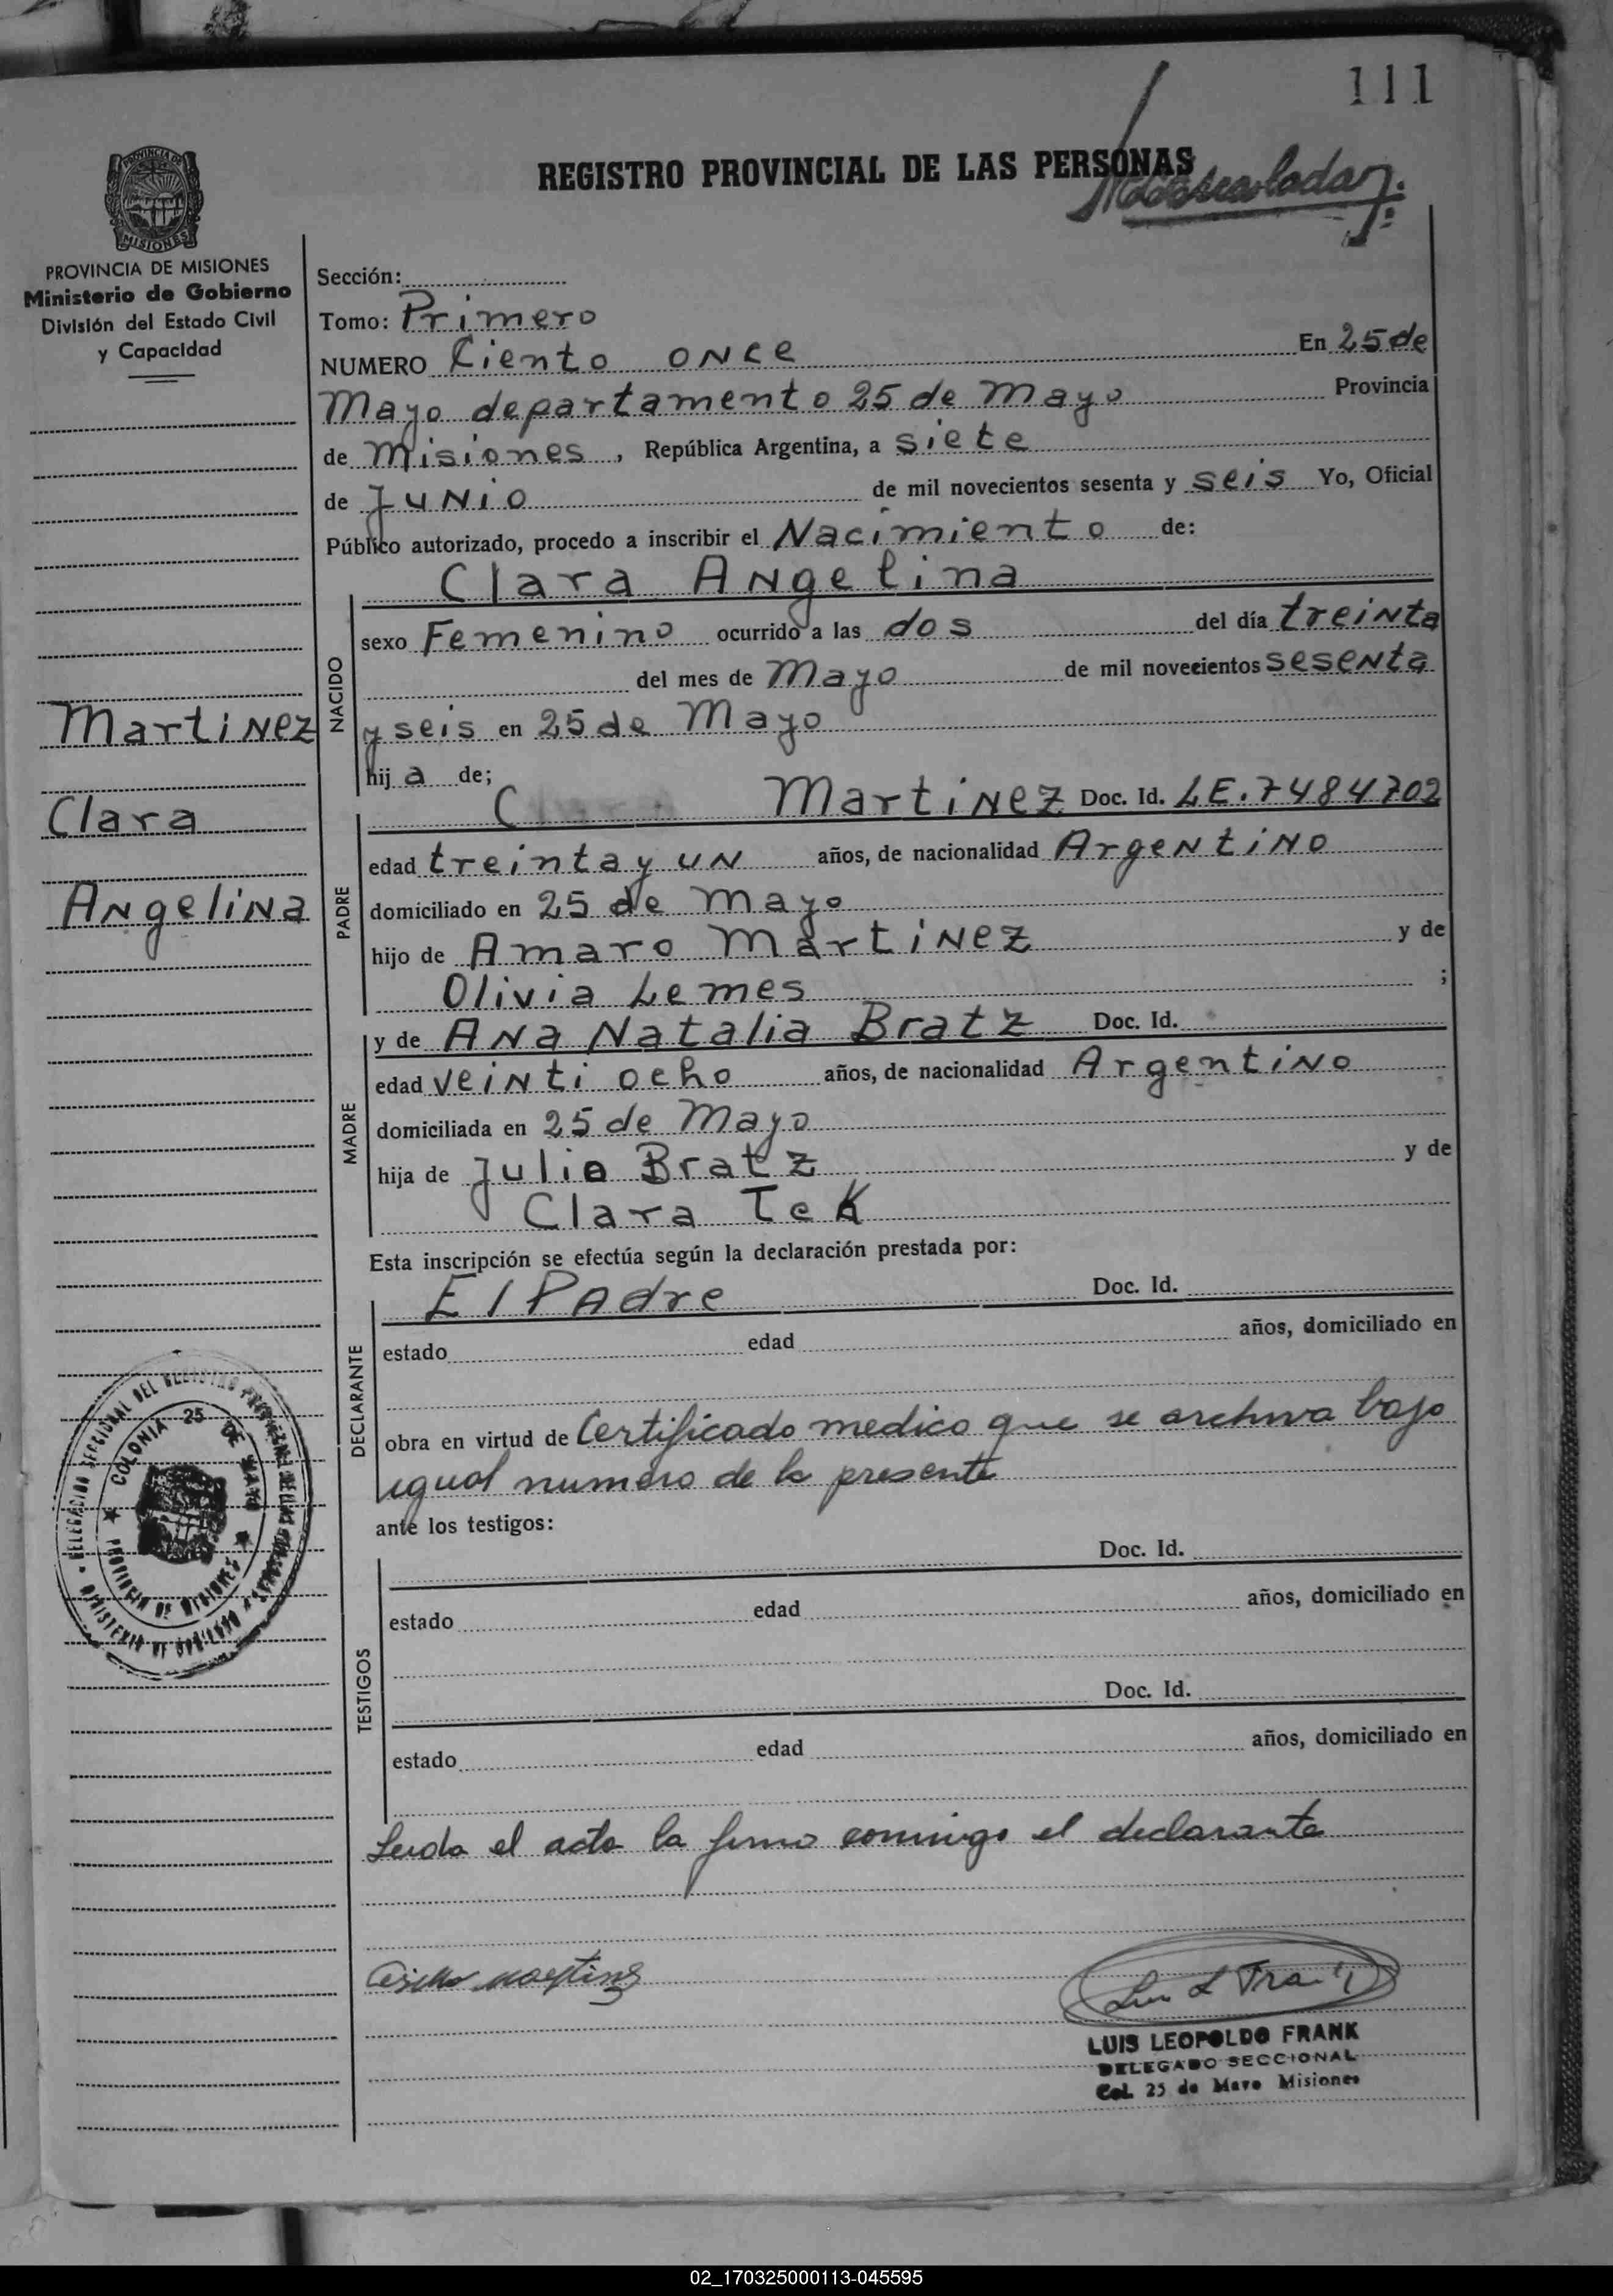 111
REGISTRO PROVINCIAL DE LAS PERSONAS
PROVINCIA DE MISIONES
Ministerio de Gobierno
División del Estado Civil
y Capacidad
Sección:
Tomo: Primero
NUMERO Ciento once En 25 de
Mayo departamento 25 de Mayo Provincia
de Misiones, República Argentina, a siete
de Junio de mil novecientos sesenta y seis Yo, Oficial
Público autorizado, procedo a inscribir el Nacimiento de:
Clara Angelina
NACIDO
sexo Femenino ocurrido a las dos del día treinta
del mes de Mayo de mil novecientos sesenta
y seis en 25 de Mayo
hija de;
Martinez
Clara
Angelina
PADRE
Martinez Doc. Id. LE. 7484702
edad treinta y un años, de nacionalidad Argentino
domiciliado en 25 de Mayo
hijo de Amaro Martinez y de
Olivia Lemes ;
MADRE
y de Ana Natalia Bratz Doc. Id.
edad veinti ocho años, de nacionalidad Argentino
domiciliada en 25 de Mayo
hija de Julio Bratz y de
Clara Tek
Esta inscripción se efectúa según la declaración prestada por:
DECLARANTE
El Padre Doc. Id.
estado edad años, domiciliado en
obra en virtud de Certificado medico que se archiva bajo
igual numero de la presente
ante los testigos:
TESTIGOS
Doc. Id.
estado edad años, domiciliado en
Doc. Id.
estado edad años, domiciliado en
Leida el acta la firma conmigo el declarante
COLONIA 25 DE MAYO
PROVINCIA DE MISIONES
LUIS LEOPOLDO FRANK
DELEGADO SECCIONAL
Col. 25 de Mayo Misiones
02_170325000113-045595